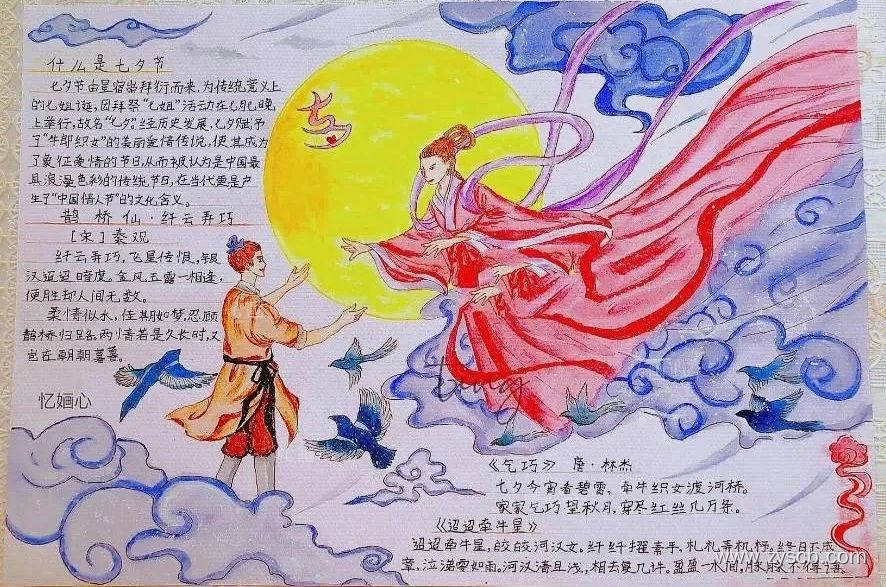 什么是七夕节
七夕节由星宿崇拜衍而来,为传统意义上
的七姐诞,因拜祭“七姐”活动在七月七晚
上举行,故名“七夕”。经历史发展,七夕赋予
了“牛郎织女”的美丽爱情传说,使其成为
了象征爱情的节日,从而被认为是中国最
具浪漫色彩的传统节日,在当代更是产
生了“中国情人节”的文化含义。
鹊桥仙·纤云弄巧
[宋]秦观
纤云弄巧,飞星传恨,银
汉迢迢暗度。金风玉露一相逢,
便胜却人间无数。
柔情似水,佳期如梦,忍顾
鹊桥归路。两情若是久长时,又
岂在朝朝暮暮。
忆婳心
七夕
《乞巧》 唐·林杰
七夕今宵看碧霄,牵牛织女渡河桥。
家家乞巧望秋月,穿尽红丝几万条。
《迢迢牵牛星》
迢迢牵牛星,皎皎河汉女。纤纤擢素手,札札弄机杼。终日不成
章,泣涕零如雨。河汉清且浅,相去复几许。盈盈一水间,脉脉不得语。
www.zyscb.com